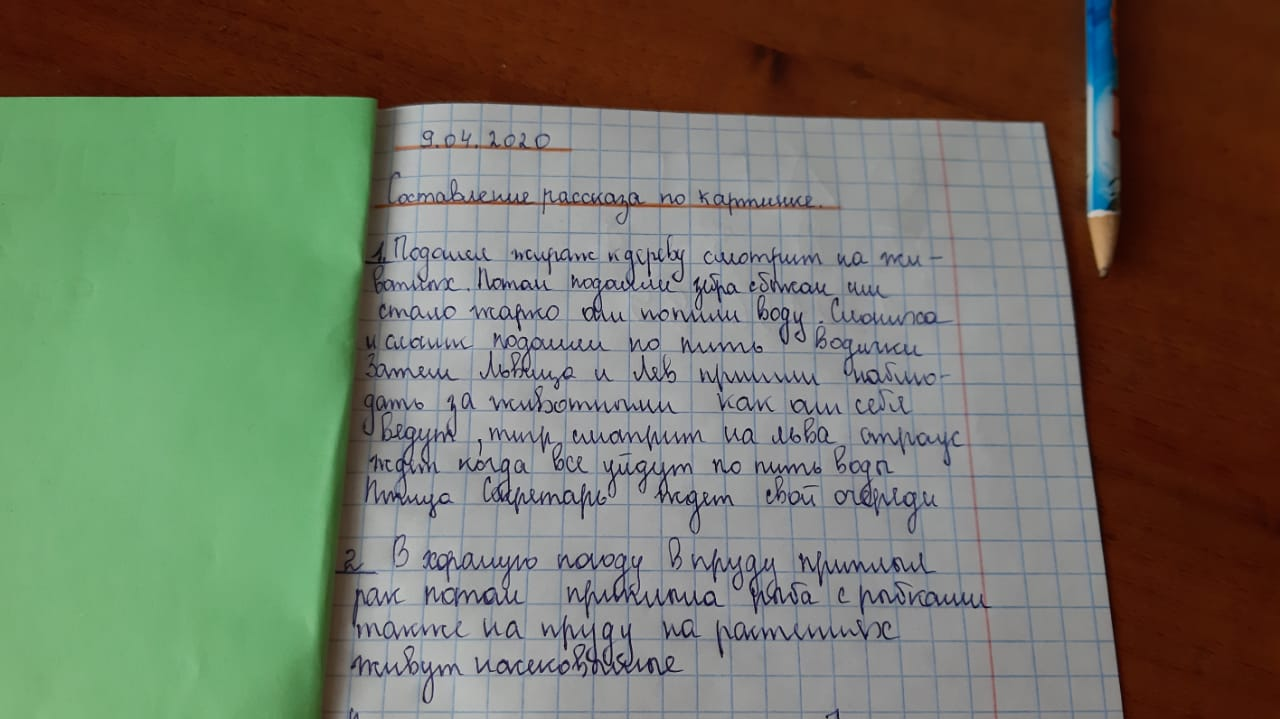 9.04.2020
Составление рассказа по картинке.
1. Подошел жираф к дереву смотрит на жи-
вотных. Потом подошли зебра с быком им
стало жарко они попили воду. Слониха
и слоник подошли по пить водички
Затем Львица и Лев пришли наблю-
дать за животными как они себя
ведут, тигр смотрит на льва страус
ждет когда все уйдут по пить воды
Птица Секретарь ждет свой очереди
2 В хорошую погоду в пруду приплыл
рак потом приплыла рыба с рыбками
также на пруду на растениях
живут насекомые